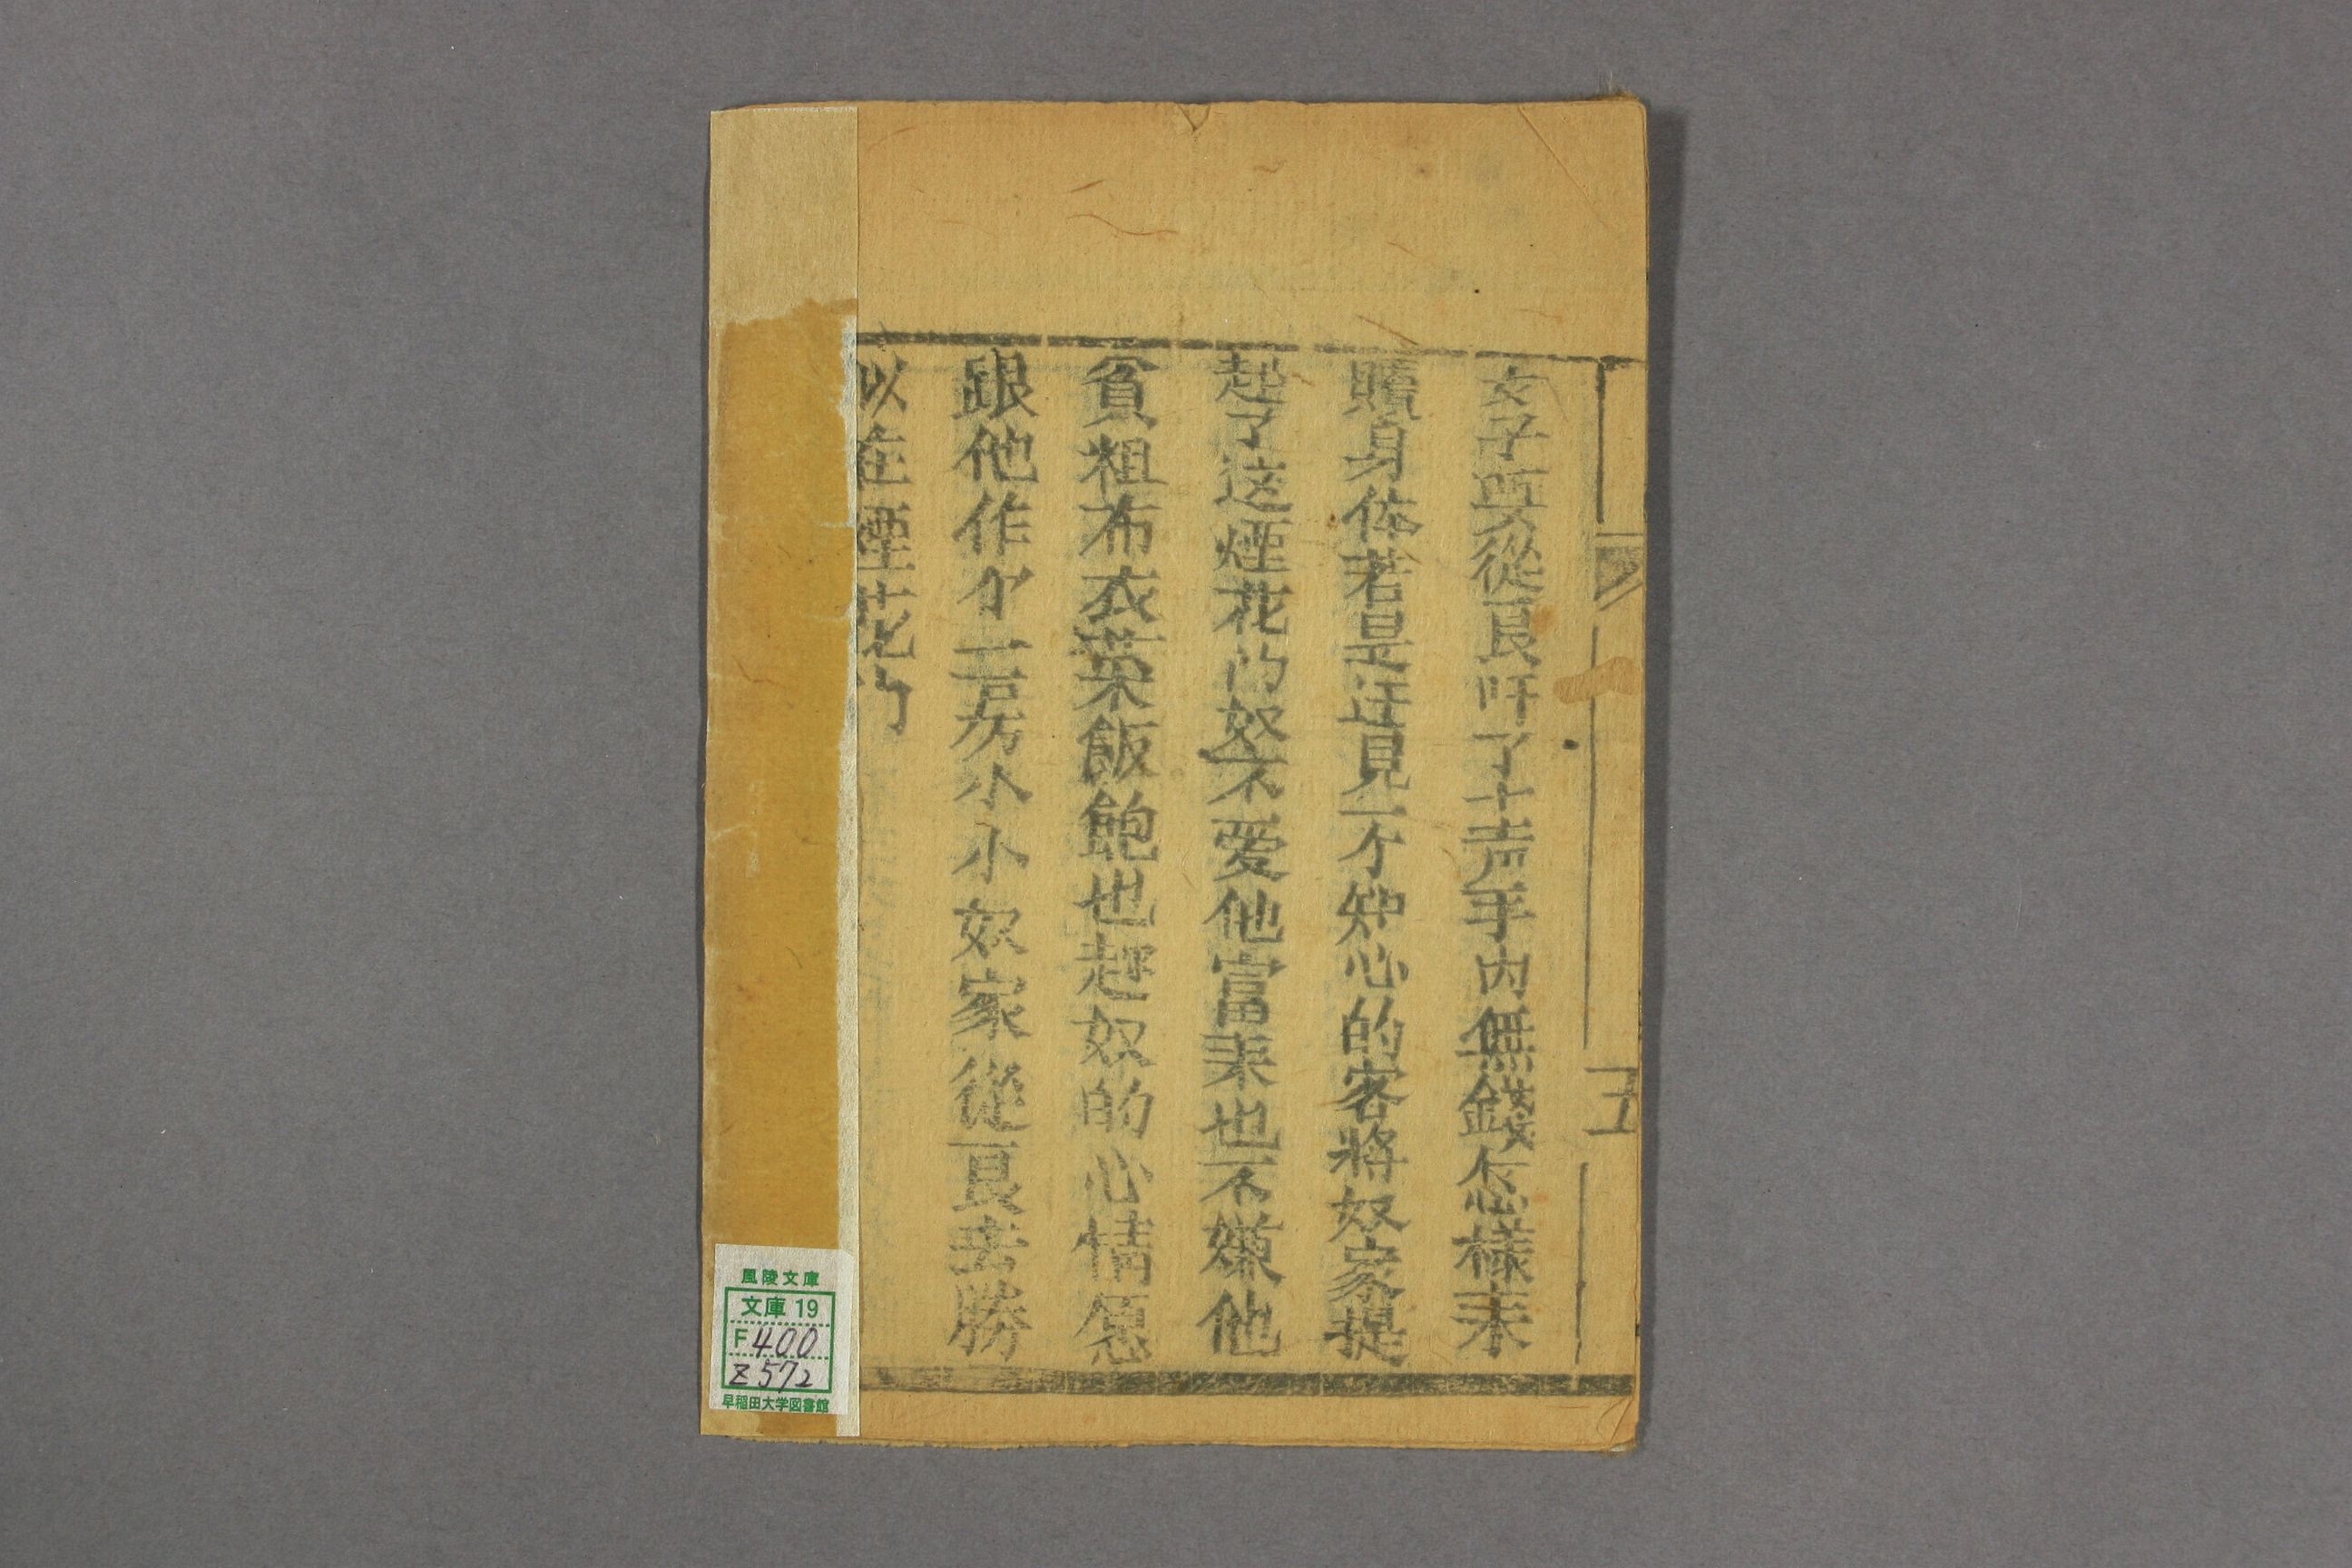 女子要從良吁了一声手内無錢怎樣来
贖身体若是遇見一个知心的客將奴家提
起了这煙花的奴不愛他富来也不嫌他
貧粗布衣菜飯飽也趁奴的心情愿
跟他作个二房小小奴家從良去勝
似在煙花
五
風陵文庫
文庫 19
F400
Z572
早稲田大学図書館